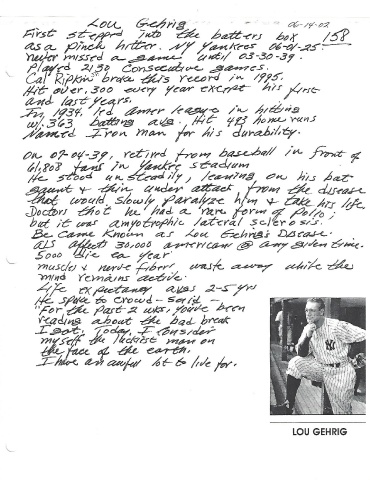 Lou Gehrig
06-14-02
158
First stepprd into the batters box
as a pinch hitter. NY Yankees 06-01-25.
never missed a game until 03-30-39.
Played 2130 consecutive games.
Cal Ripkin broke this record in 1995.
Hit over .300 every year except his first
and last years.
In, 1934, led Amer league in hitting
w/.363 batting avg. Hit 493 home runs
Named Iron man for his durability.
On 07-04-39, retired from baseball in front of
61,808 fans in Yankee stadium
He stood unsteadily, leaning on his bat
gaunt & thin, under attack, from the disease
that would slowly paralyze him & take his life
Doctors thot he had a rare form of Polio;
but it was amyotrophic lateral sclerosis.
Be came known as Lou Gehrig's Disease.
ALS affects 30,000 americans @ any given time.
5000 die ea year
muscles & nerve fibers waste away while the
mind remains active.
Life expectancy avgs 2-5 yrs
He spoke to crowd - said -
"For the past 2 wks, you've been
reading about the bad break
I got, Today, I consider
myself the luckiest man on
the face of the earth.
I have an awful lot to live for.
LOU GEHRIG